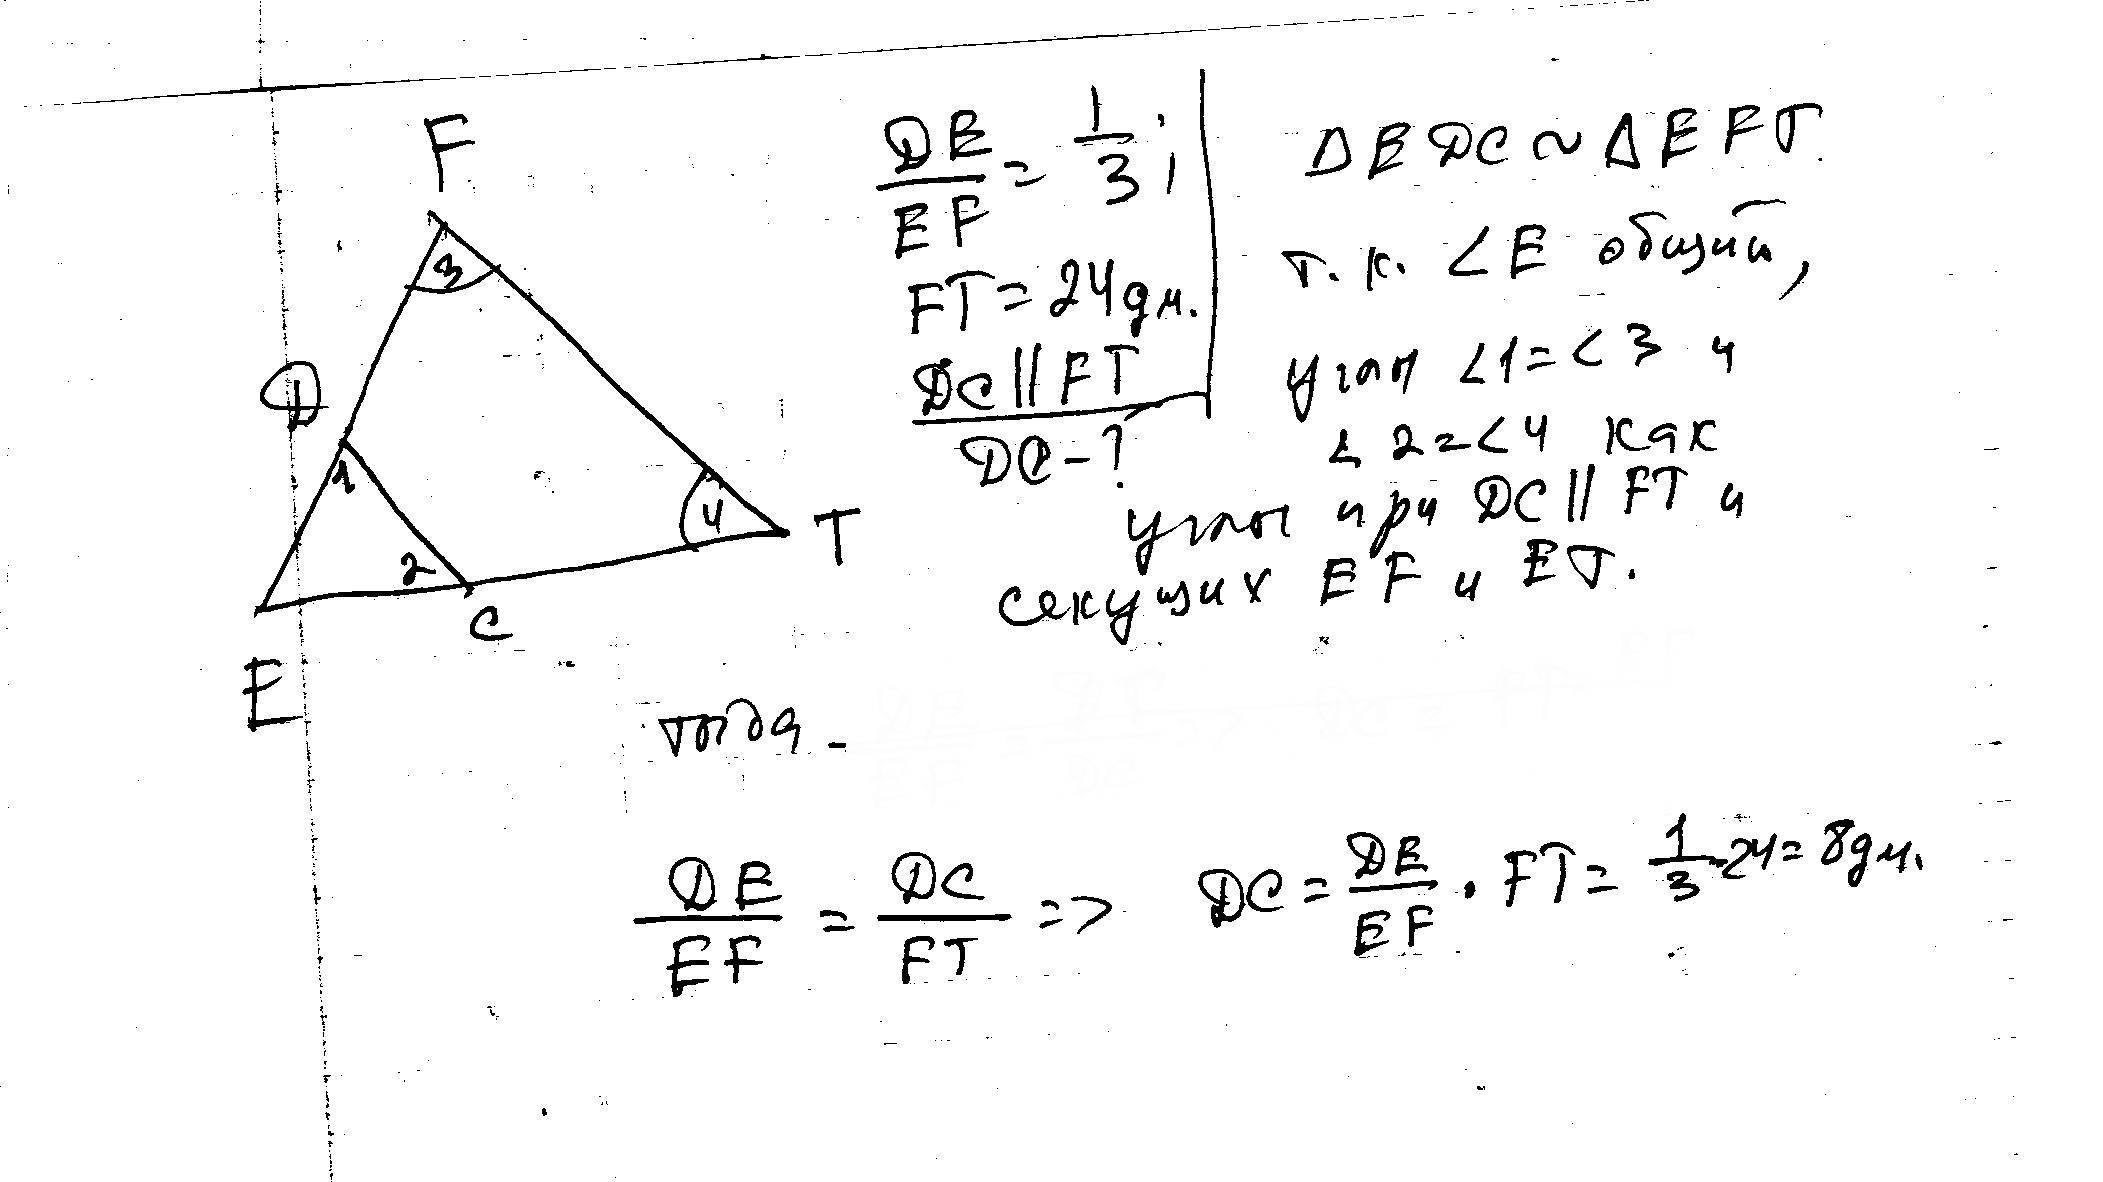 F
3
D
1
2
4
T
C
E
DE/EF = 1/3;
FT = 24дм.
DC || FT
DC - ?
ΔEDC ~ ΔEFT.
т.к. ∠E общий,
углы ∠1 = ∠3 и
∠2 = ∠4 как
углы при DC || FT и
секущих EF и ET.
тогда -
DE/EF = DC/FT => DC = DE/EF · FT = 1/3 · 24 = 8дм.